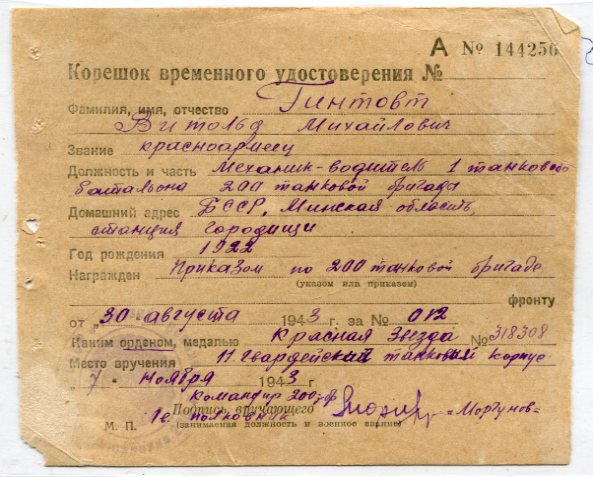 А № 144256
Корешок временного удостоверения №
Фамилия, имя, отчество Гинтовт
Витольд Михайлович
Звание красноармеец
Должность и часть Механик-водитель 1 танкового
батальона 200 танковой бригады
Домашний адрес БССР, Минская область,
станция городищи
Год рождения 1922
Награжден Приказом по 200 танковой бригаде
(указом или приказом)
фронту
от „30 августа 1943 г. за № 012
Каким орденом, медалью Красная Звезда № 318308
Место вручения 11 Гвардейский танковый корпус
7 " ноября 1943 г
Командир 200
Подпись вручающего Моргунов
полковник
М. П. (занимаемая должность и военное звание)